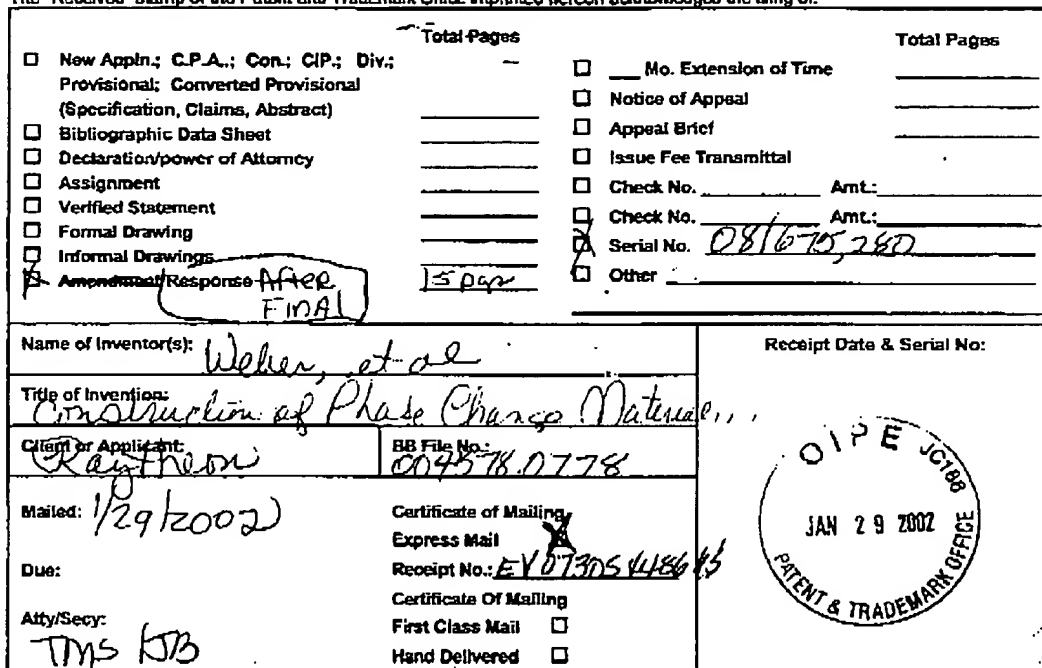 The "Received" Stamp of the Patent and Trademark Office imprinted hereon acknowledges the filing of:
Total Pages
☐ New Appln.; C.P.A..; Con.; CIP.; Div.;
Provisional; Converted Provisional
(Specification, Claims, Abstract)
☐ Bibliographic Data Sheet
☐ Declaration/power of Attorney
☐ Assignment
☐ Verified Statement
☐ Formal Drawing
☐ Informal Drawings
☒ Amendment/Response After Final 15 pgs
Total Pages
☐ ___ Mo. Extension of Time
☐ Notice of Appeal
☐ Appeal Brief
☐ Issue Fee Transmittal
☐ Check No. Amt.:
☐ Check No. Amt.:
☒ Serial No. 08/675,280
☐ Other
Name of Inventor(s): Weber, et al
Title of Invention: Construction of Phase Change Material...
Client or Applicant: Raytheon
BB File No.: 004578.0778
Mailed: 1/29/2002
Due:
Atty/Secy: TMS
Certificate of Mailing
Express Mail ☒
Receipt No.:
Certificate Of Mailing
First Class Mail ☐
Hand Delivered ☐
Receipt Date & Serial No:
OIPE JC188
JAN 29 2002
PATENT & TRADEMARK OFFICE